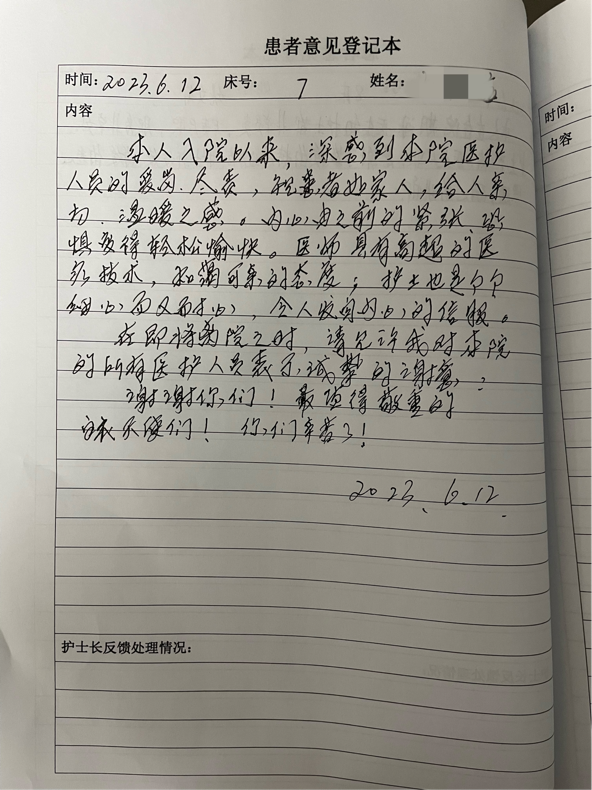 患者意见登记本
时间: 2023.6.12 床号: 7 姓名:
时间:
内容
内容
本人入院以来，深感到本院医护
人员的爱岗.尽责，视患者如家人，给人亲
切.温暖之感。内心由之前的紧张、恐
惧变得轻松愉快。医师具有高超的医
疗技术，和蔼可亲的态度；护士也是个个
细心而又耐心，令人发自内心的信服。
在即将出院之时，请允许我对本院
的所有医护人员表示诚挚的谢意：
谢谢你们！最值得敬重的
白衣天使们！你们辛苦了！
2023.6.12.
护士长反馈处理情况：